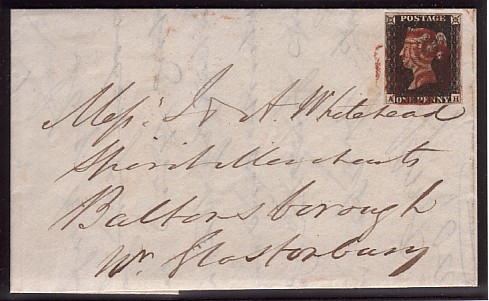 POSTAGE
A ONE PENNY H
Messrs J & A. Whitehead
Spirit Merchants
Baltonsborough
Nr. Glastonbury